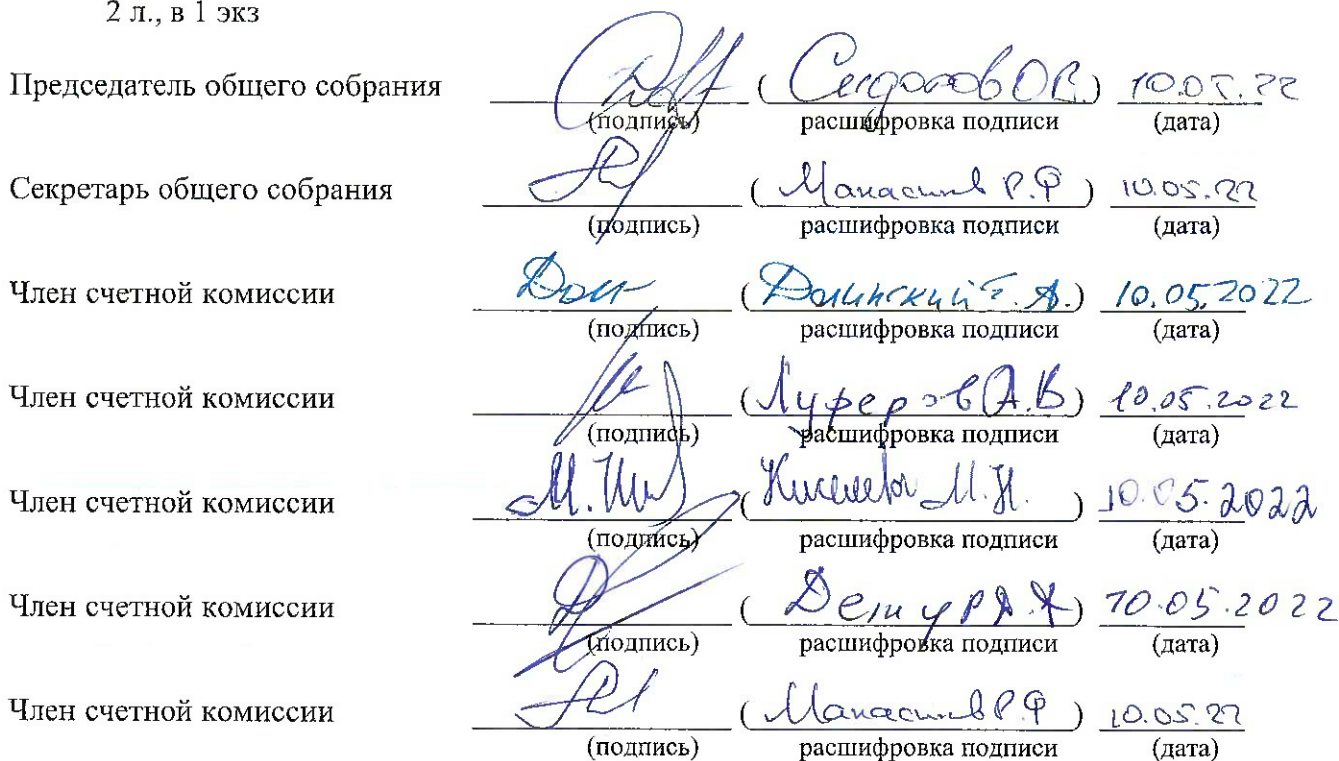 2 л., в 1 экз
Председатель общего собрания ( Сидоров О.В.) 10.05.22
(подпись) расшифровка подписи (дата)
Секретарь общего собрания ( Р.Ф ) 10.05.22
(подпись) расшифровка подписи (дата)
Член счетной комиссии ( Долинский А.) 10.05.2022
(подпись) расшифровка подписи (дата)
Член счетной комиссии (Луферов А.В) 10.05.2022
(подпись) расшифровка подписи (дата)
Член счетной комиссии ( М.Н. ) 10.05.2022
(подпись) расшифровка подписи (дата)
Член счетной комиссии ( ) 10.05.2022
(подпись) расшифровка подписи (дата)
Член счетной комиссии ( Р.Ф ) 10.05.22
(подпись) расшифровка подписи (дата)